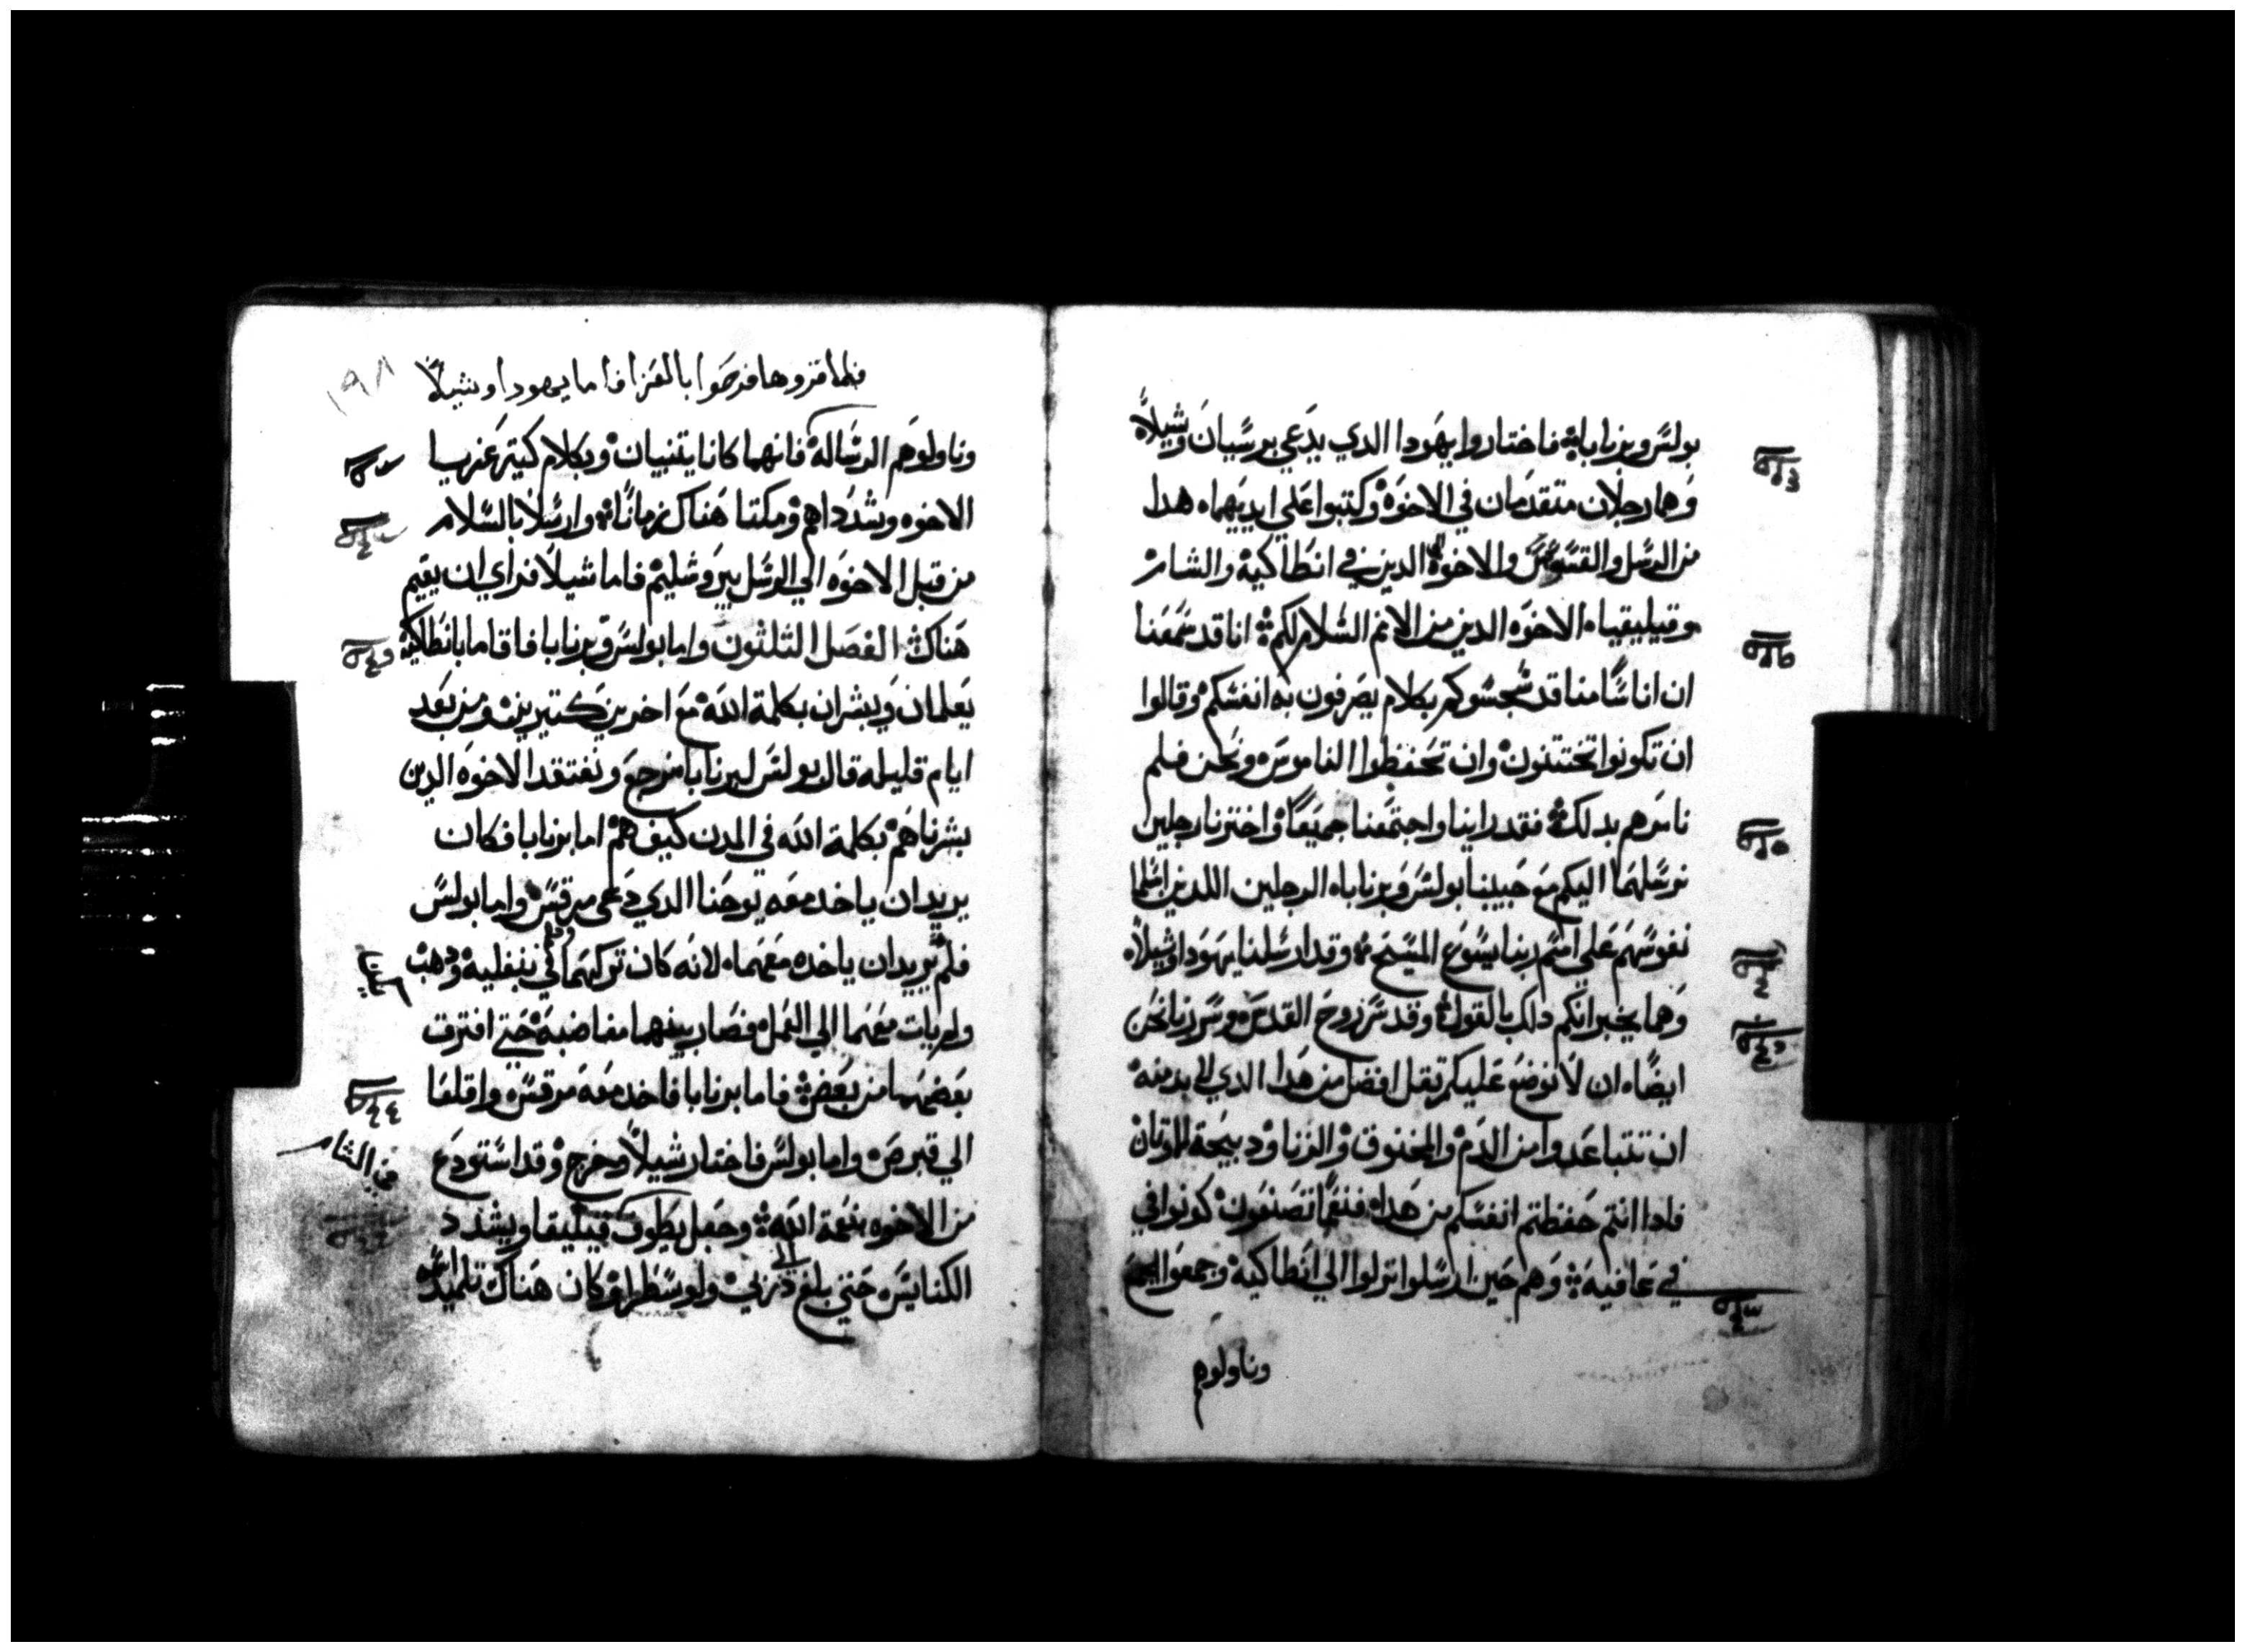 بولس وبرنابا۞ فاختاروا يهودا الدي يدعي برسيان وشيلا
وهما رجلان متقدمان في الاخوة وكتبوا علي ايديهما هدا
من الرسل والقسوس والاخوة الي الدين في انطاكية والشام
وقيليقيا الاخوه الدين من الامم السلام لكم۞ انا قد سمعنا
ان اناسا منا قد سجسوكم بكلام يصرفون به انفسكم وقالوا
ان تكونوا تختتنون وان تحفظوا الناموس ونحن فلم
نامرهم بدلك۞ فقد راينا واجتمعنا جميعا واخترنا رجلين
نرسلهما اليكم مع حبيبنا بولس وبرنابا الرجلين اللدين اسلما
نفوسهم علي اسم ربنا يسوع المسيح۞ وقد ارسلنا يهودا وشيلا
وهما يخبرانكم دلك بالقول۞ وقد سر روح القدس وسررنا نحن
ايضا ان لا نوضع عليكم ثقل افضل من هدا الدي لا بد منه
ان تتباعدوا من الدم والمخنوق والزنا ودبيحة للاوتان
فادا انتم حفظتم انفسكم من هدا فنعما تصنعون كونوا في
في عافيه۞ وهم حين ارسلوا نزلوا الي انطاكية وجمعوا الجمع
وناولوهم
١٩٨
فلما قروها فرحوا بالعزا فاما يهودا وشيلا
وناولوهم الرساله فانهما كانا يتنبيان وبكلام كتير عزيا
الاخوه وشدداهم ومكتا هناك زمانا۞ وارسلا بالسلام
من قبل الاخوه الي الرسل بيروشليم فاما شيلا فراي ان يقيم
هناك۞ الفصل الثلثون واما بولس وبرنابا فاقاما بانطاكية
يعلمان ويبشران بكلمة الله مع اخرين كتيرين ومن بعد
ايام قليله قال بولس لبرنابا نرجع ونفتقد الاخوه الدين
بشرناهم بكلمة الله في المدن كيف هم اما برنابا فكان
يريد ان ياخد معه يوحنا الدي دعي مرقس واما بولس
فلم يريد ان ياخده معهما لانه كان تركهما في بنفليه ودهب
ولم يات معهما الي العمل فصار بينهما مغاضبة حتي افترقت
بعضهما من بعض۞ فاما برنابا فاخد معه مرقس واقلعا
الي قبرص واما بولس فاختار شيلا وخرج وقد استودع
في الشام
من الاخوه بنعمة الله۞ وجعل يطوف قيليقيا ويشدد
الكنايس حتي بلغ الي دربي ولوسطرا وكان هناك تلميدا اسمه